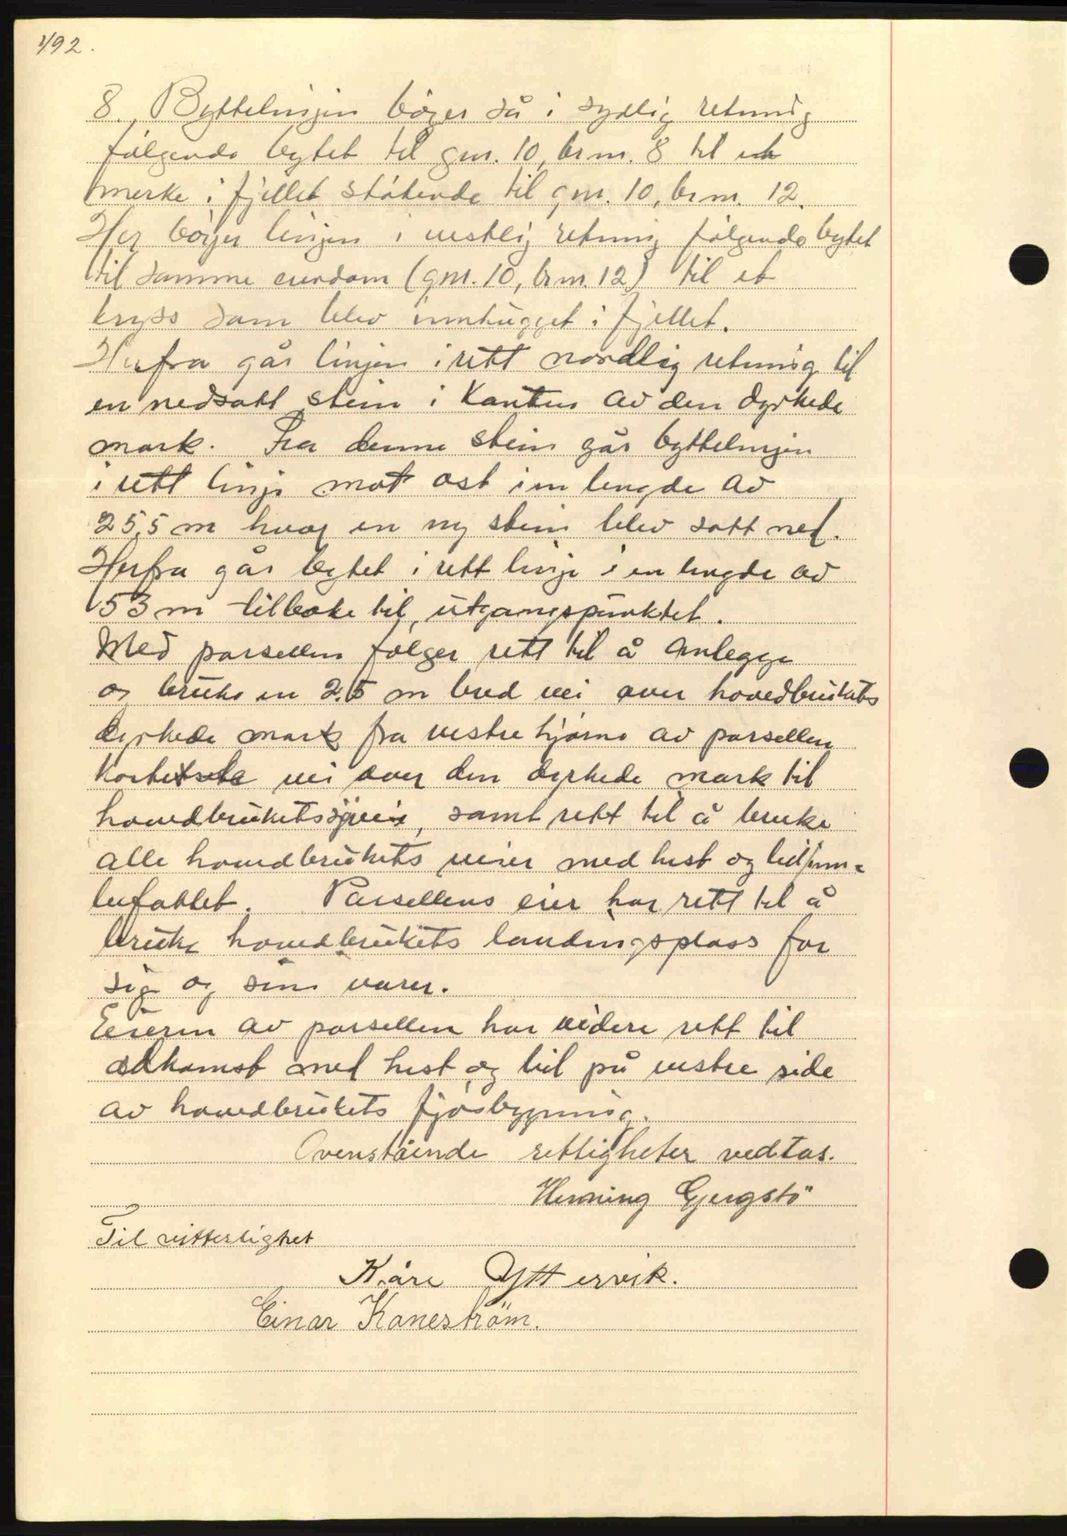 492.
8. Byttelinjen böyer så i sydlig retning
følgende bytet til gnr. 10, brnr. 8 til et
merke i fjellet støtende til gnr. 10, brnr. 12.
Her böyer linjen i vestlig retning følgende bytet
til samme eiendom (gnr. 10, brnr. 12) til et
kryss som blev innhugget i fjellet.
Herfra går linjen i rett nordlig retning til
en nedsatt stein i Kanten av den dyrkede
mark. Fra denne stein går byttelinjen
i rett linje mot øst i en lengde av
25,5 m hvor en ny stein blev satt ned.
Herfra går bytet i rett linje i en lengde av
53 m tilbake til utgangspunktet.
Med parsellen følger rett til å anlegge
og bruke en 2.5 m bred vei over hovedbrukets
dyrkede mark fra vestre hjørne av parsellen
korteste vei over den dyrkede mark til
hovedbrukets, samt rett til å bruke
alle hovedbrukets veier med hest og bil inn-
befattet. Parsellens eier har rett til å
bruke hovedbrukets landingsplass for
sig og sine varer.
Eieren av parsellen har videre rett til
adkomst med hest og bil på vestre side
av hovedbrukets fjøsbygning.
Ovenstående rettigheter vedtas.
Henning Gjengstö
Til vitterlighet
Kåre Yttervik.
Einar Kaneström.